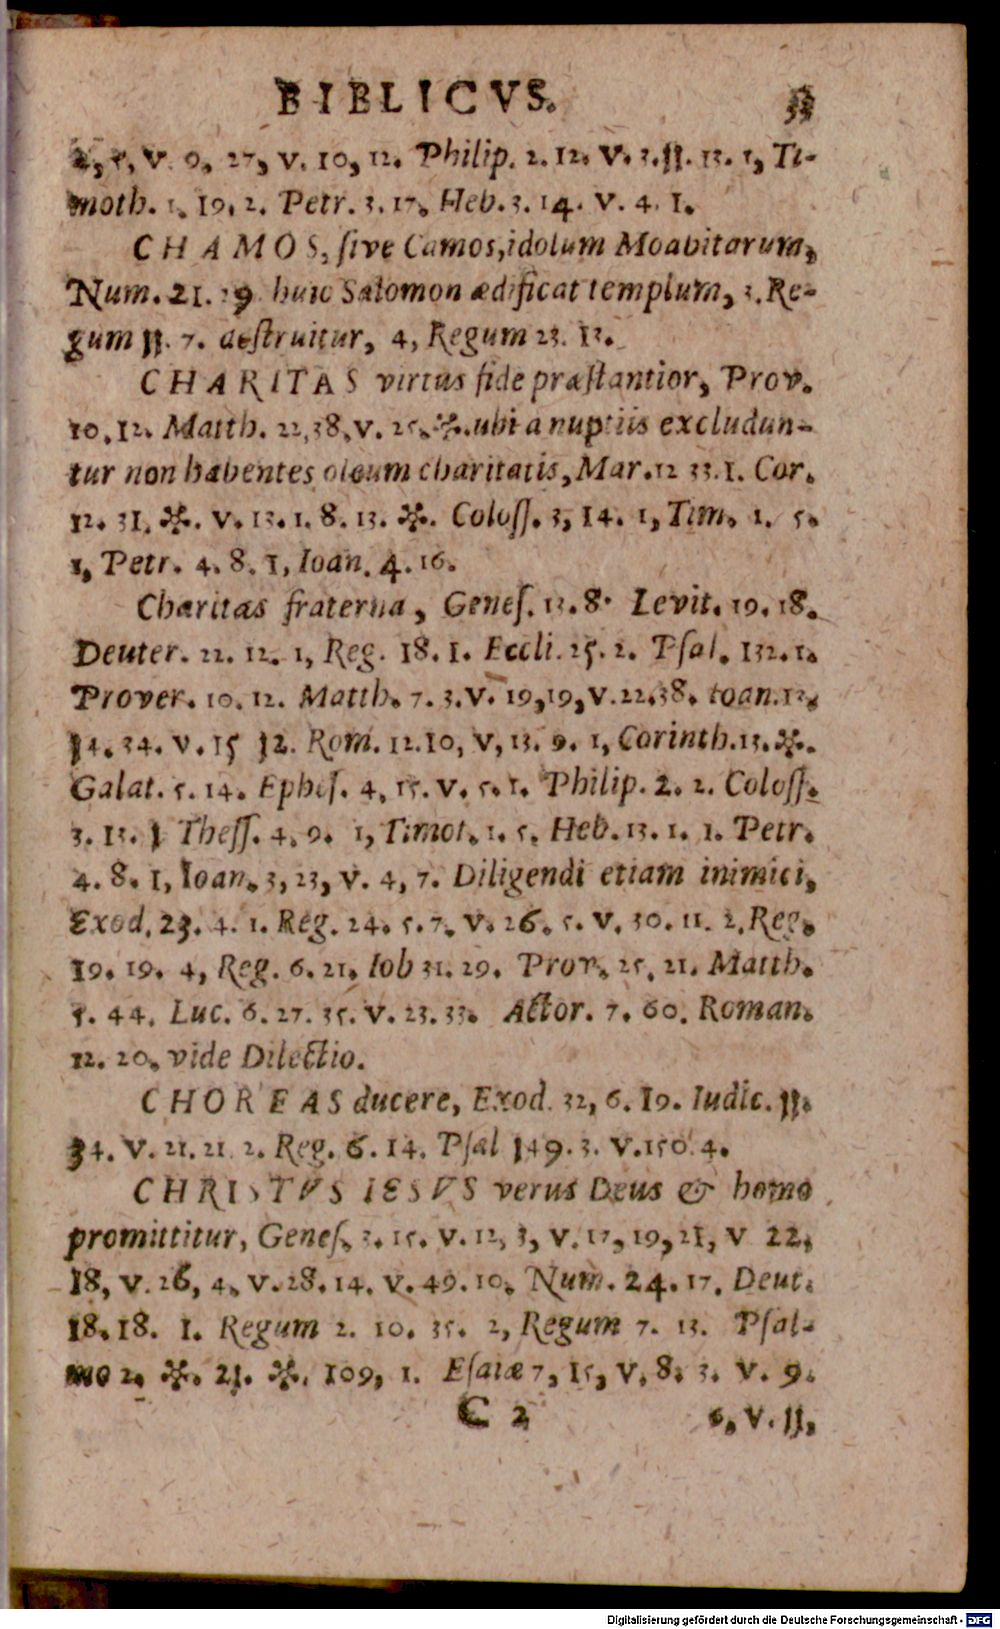 BIBLICVS. 33
2, 5, V. 9, 27, V. 10, 12. Philip. 2. 12. V. 3. 11. 13. 1, Ti-
moth. 1. 19. 2. Petr. 3. 17. Heb. 3. 14. V. 4. 1.
CHAMOS, ſive Camos, idolum Moabitarum,
Num. 21. 29 huic Salomon ædificat templum, 3. Re-
gum 11. 7. deſtruitur, 4, Regum 23. 13.
CHARITAS virtus fide præſtantior, Prov.
10. 12. Matth. 22, 38, v. 25. ✲. ubi a nuptiis excludun-
tur non habentes oleum charitatis, Mar. 12 33. 1. Cor.
12. 31. ✲. v. 13. 1. 8. 13. ✲. Coloſſ. 3, 14. 1, Tim. 1. 5.
1, Petr. 4. 8. 1, Ioan. 4. 16.
Charitas fraterna, Geneſ. 13. 8. Levit. 19. 18.
Deuter. 22. 12. 1, Reg. 18. 1. Eccli. 25. 2. Pſal. 132. 1.
Prover. 10. 12. Matth. 7. 3. V. 19, 19, V. 22. 38. Ioan. 13.
14. 34. v. 15 12. Rom. 12. 10, V, 13. 9. 1, Corinth. 13. ✲.
Galat. 5. 14. Epheſ. 4, 15. V. 5. 1. Philip. 2. 2. Coloſſ.
3. 13. 1 Theſſ. 4. 9. 1, Timot. 1. 5. Heb. 13. 1. 1. Petr.
4. 8. 1, Ioan. 3, 23, v. 4, 7. Diligendi etiam inimici,
Exod. 23. 4. 1. Reg. 24. 5. 7. V. 26. 5. V. 30. 11. 2. Reg.
19. 19. 4, Reg. 6. 21. Iob 31. 29. Prov. 25. 21. Matth.
5. 44. Luc. 6. 27. 35. V. 23. 33. Actor. 7. 60. Roman.
12. 20. vide Dilectio.
CHOREAS ducere, Exod. 32, 6. 19. Iudic. 11.
34. V. 21. 21 2. Reg. 6. 14. Pſal 149. 3. V. 150. 4.
CHRISTVS IESVS verus Deus & homo
promittitur, Geneſ. 3. 15. V. 12, 3, V. 17, 19, 21, V 22,
18, V. 26, 4, V. 28. 14. V. 49. 10. Num. 24. 17. Deut.
18. 18. 1. Regum 2. 10. 35. 2, Regum 7. 13. Pſal-
mo 2. ✲. 21. ✲. 109, 1. Eſaiæ 7, 15, V. 8. 3. V. 9.
C 2 6, V. 11,
Digitalisierung gefördert durch die Deutsche Forschungsgemeinschaft - DFG